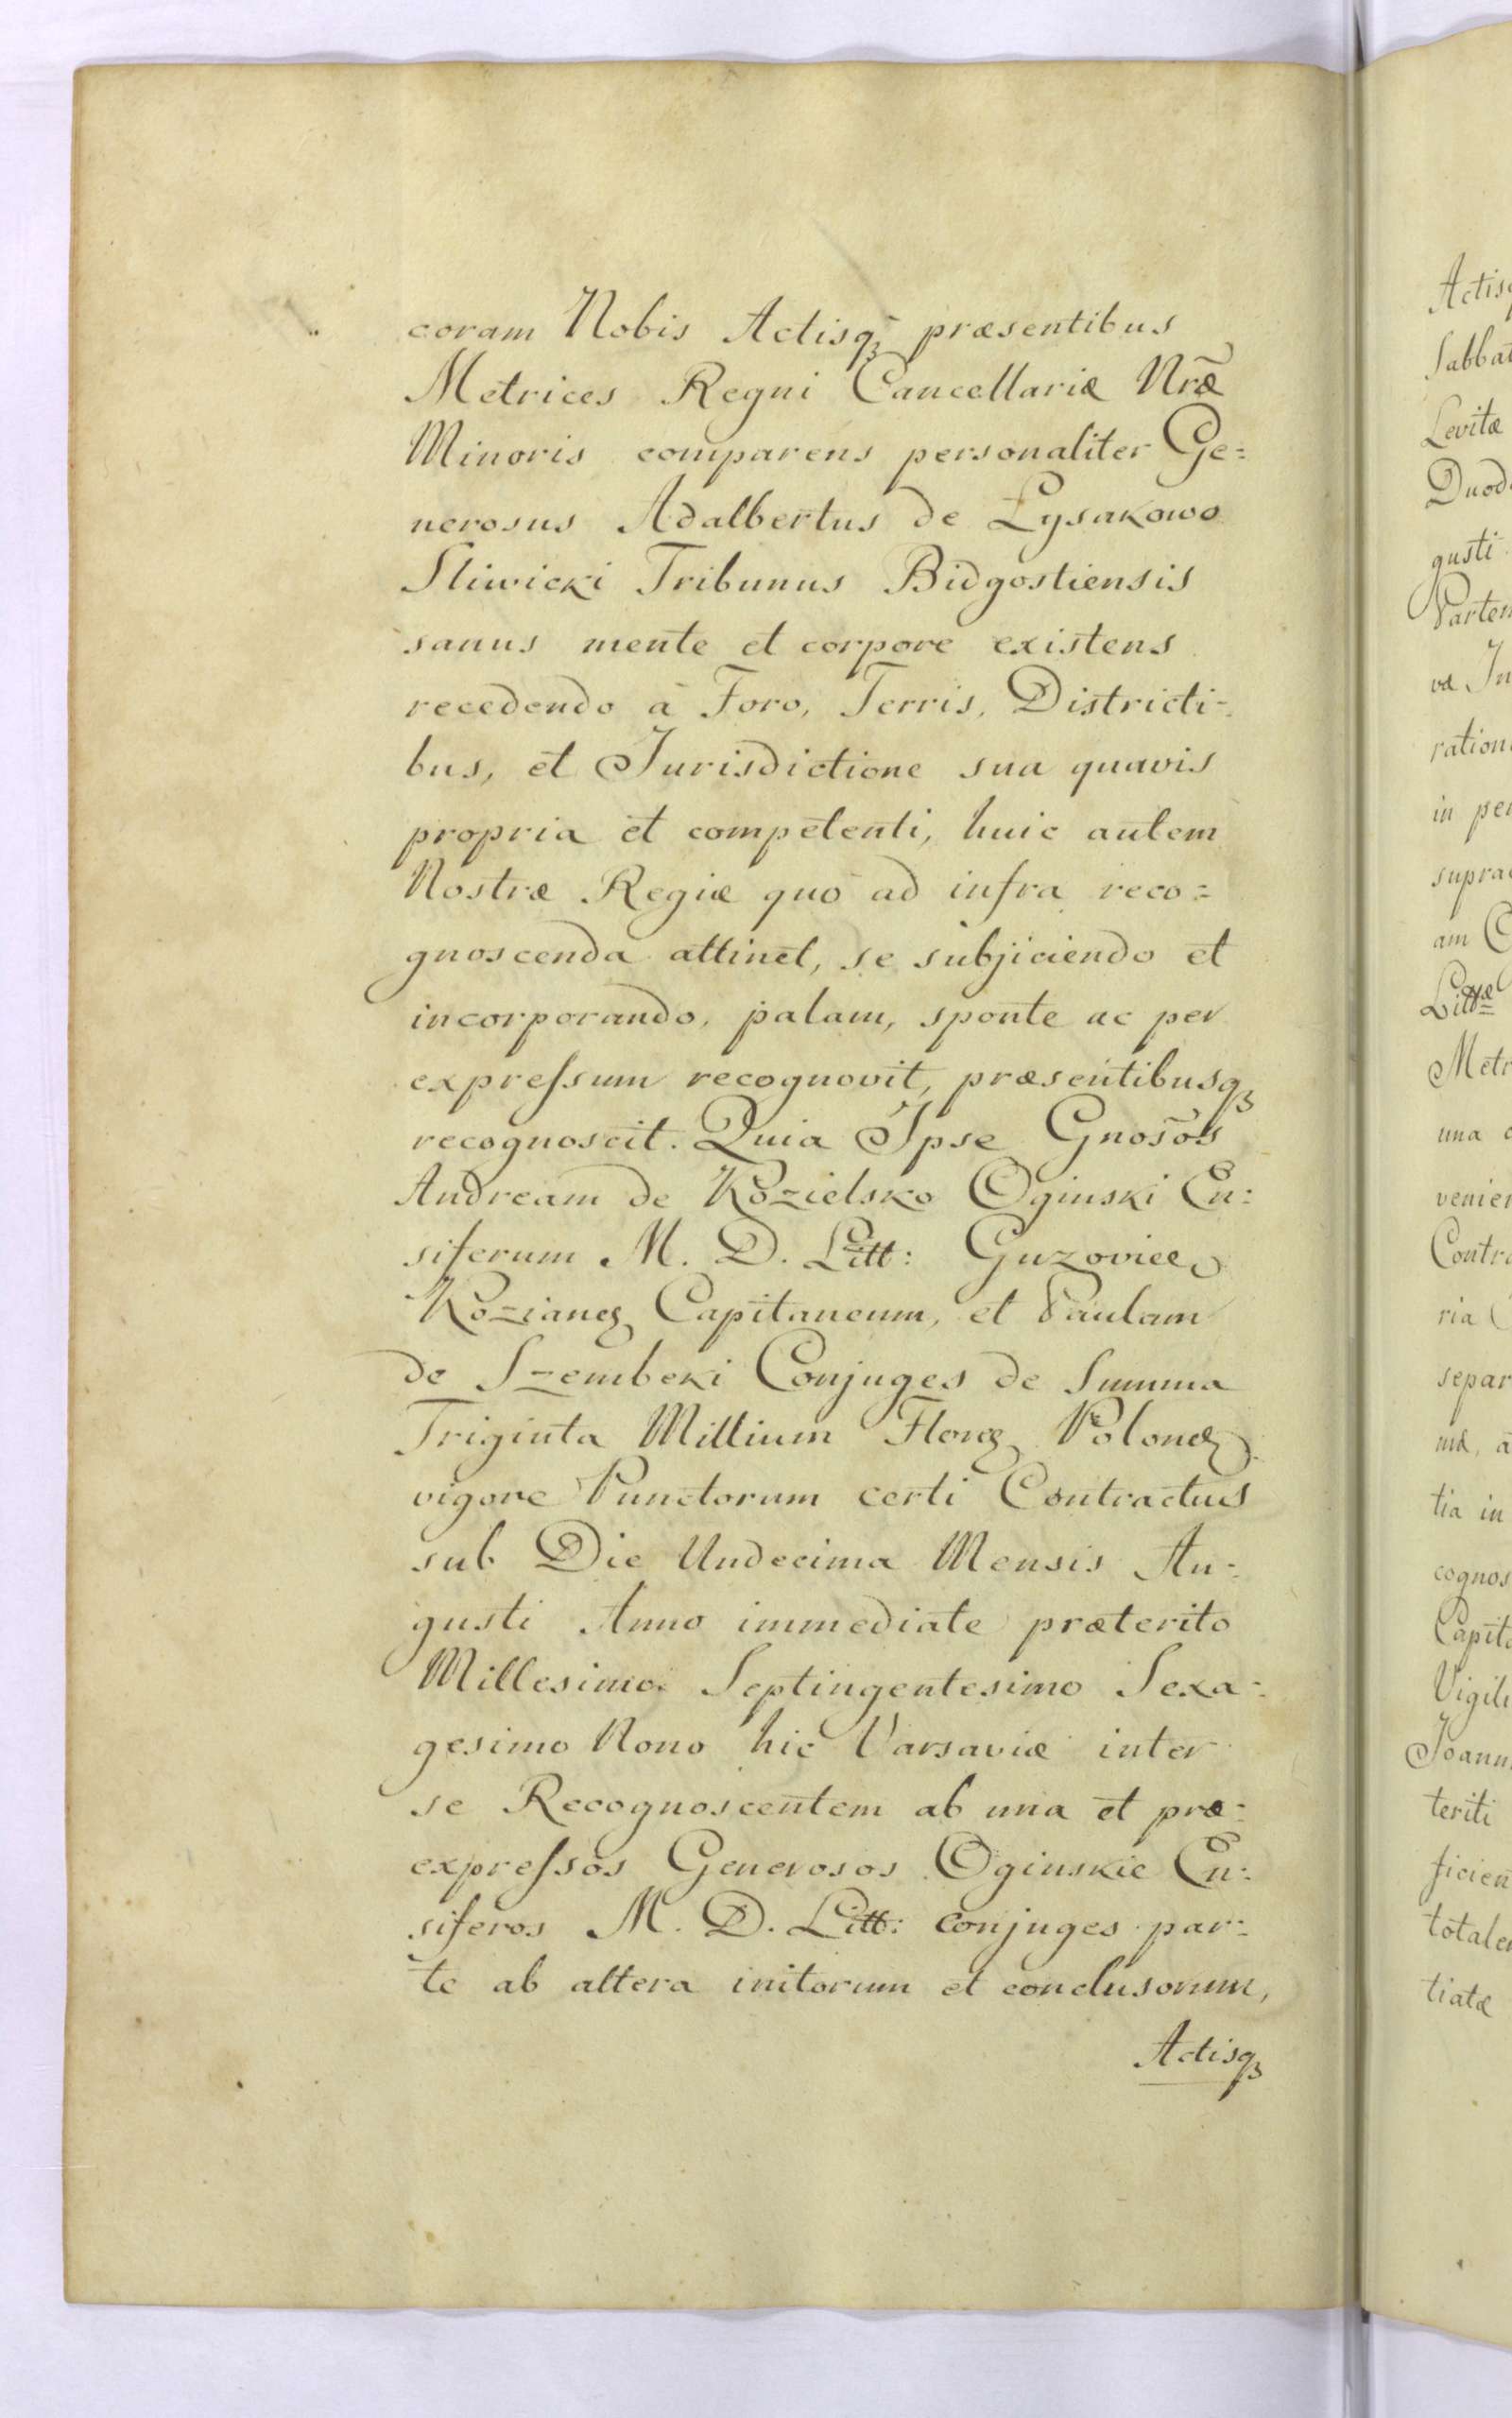 coram Nobis Actisq̃ præsentibus
Metrices Regni Cancellariæ Nræ̃
Minoris comparens personaliter Ge=
nerosus Adalbertus de Łysakowo
Sliwicki Tribunus Bidgostiensis
sanus mente et corpore existens
recedendo à Foro, Terris, Districti-
bus, et Jurisdictione sua quavis
propria et competenti, huic autem
Nostræ Regiæ quo ad infra reco=
gnoscenda attinet, se subjiciendo et
incorporando, palam, sponte ac per
expreſsum recognovit, præsentibusqꝫ
recognoscit. Quia Ipse Gnosõs
Andream de Kozielsko Oginski En:
siferum M. D. Litt: Guzovien
Kozianeꝫ Capitaneum, et Paulam
de Szembeki Conjuges de Summa
Triginta Millium Floreꝫ Poloneꝫ
vigore Punctorum certi Contractus
sub Die Undecima Mensis Au-
gusti Anno immediate præterito
Millesimo Septingentesimo Sexa-
gesimo Nono hic Varsaviæ inter
se Recognoscentem ab una et præ-
expreſsos Generosos Oginskie En:
siferos M. D. Litt: Conjuges par-
te ab altera initorum et conclusorum,
Actisqꝫ
Levitæ
gusti
teriti
tiatæ